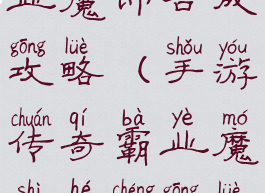 业魔师合成
gōng lüè shǒu yóu
攻略（手游
chuán qí bà yè mó
传奇霸业魔
shì hé chéng gōng lüè